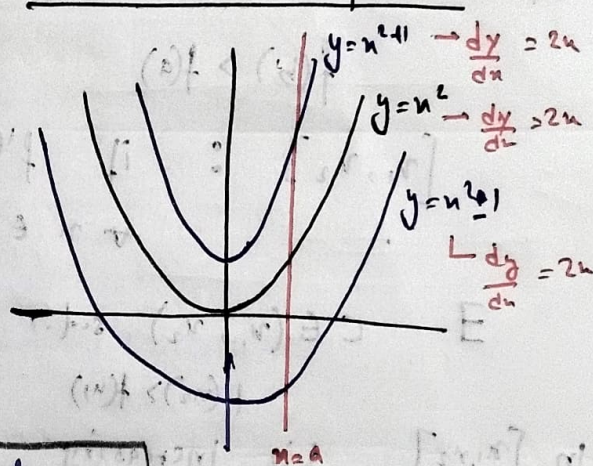 y=x²+1 → dy/dx = 2x
y=x² → dy/dx = 2x
y=x²-1
dy/dx = 2x
x=a